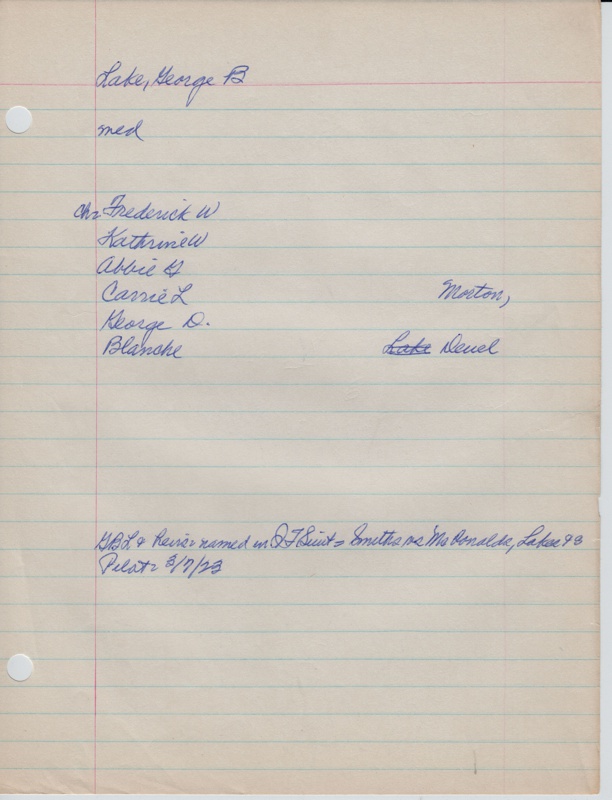 Lake, George B
med
ch= Frederick W
Kathrine W
Abbie G
Carrie L Morton,
George D.
Blanche Lake Deuel
GBL & heirs named in QT Suit = Smiths vs McDonalds, Lakes
Pilot= 3/7/23